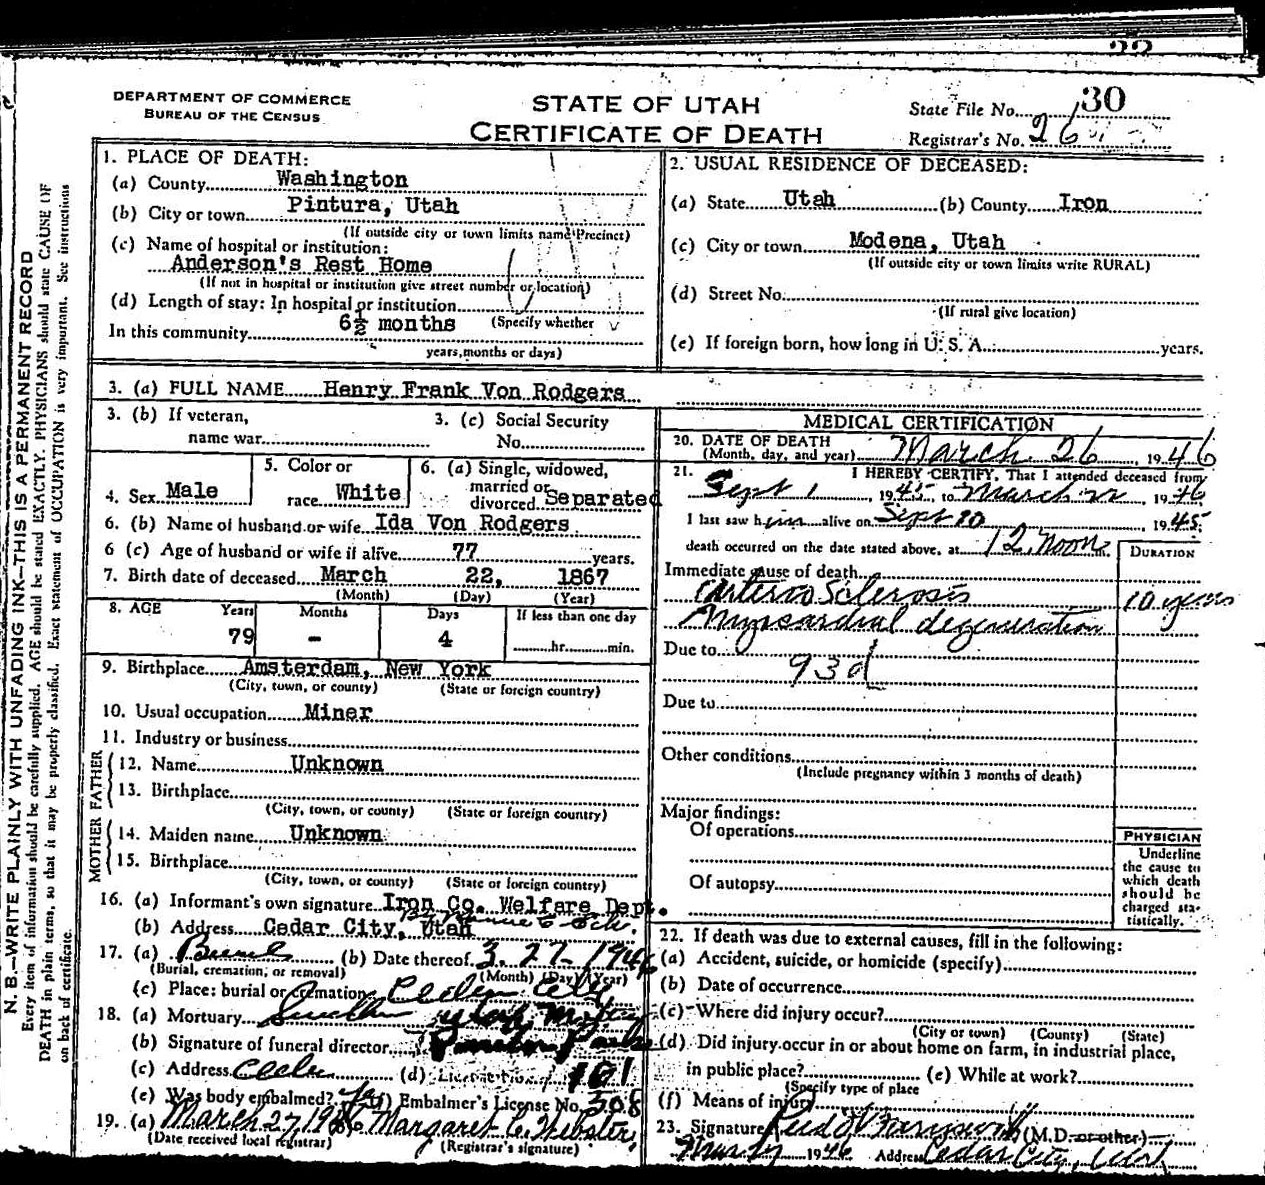 DEPARTMENT OF COMMERCE
BUREAU OF THE CENSUS
STATE OF UTAH
CERTIFICATE OF DEATH
State File No. 30
Registrar's No. 26
N. B.—WRITE PLAINLY WITH UNFADING INK—THIS IS A PERMANENT RECORD
Every item of information should be carefully supplied. AGE should be stated EXACTLY. PHYSICIANS should state CAUSE OF
DEATH in plain terms, so that it may be properly classified. Exact statement of OCCUPATION is very important. See instructions
on back of certificate.
1. PLACE OF DEATH:
(a) County Washington
(b) City or town Pintura, Utah
(If outside city or town limits name Precinct)
(c) Name of hospital or institution:
Anderson's Rest Home
(If not in hospital or institution give street number or location)
(d) Length of stay: In hospital or institution
(Specify whether
In this community 6½ months
years, months or days)
2. USUAL RESIDENCE OF DECEASED:
(a) State Utah (b) County Iron
(c) City or town Modena, Utah
(If outside city or town limits write RURAL)
(d) Street No.
(If rural give location)
(e) If foreign born, how long in U. S. A. years.
3. (a) FULL NAME Henry Frank Von Rodgers
3. (b) If veteran,
name war
3. (c) Social Security
No.
4. Sex Male
5. Color or
race White
6. (a) Single, widowed,
married or
divorced Separated
6. (b) Name of husband or wife Ida Von Rodgers
6 (c) Age of husband or wife if alive 77 years.
7. Birth date of deceased March 22, 1867
(Month) (Day) (Year)
8. AGE Years Months Days If less than one day
79 - 4 hr. min.
9. Birthplace Amsterdam, New York
(City, town, or county) (State or foreign country)
10. Usual occupation Miner
11. Industry or business
FATHER
12. Name Unknown
13. Birthplace
(City, town, or county) (State or foreign country)
MOTHER
14. Maiden name Unknown
15. Birthplace
(City, town, or county) (State or foreign country)
16. (a) Informant's own signature Iron Co. Welfare Dept.
(b) Address Cedar City, Utah
17. (a) Burial (b) Date thereof 3-27-1946
(Burial, cremation, or removal) (Month) (Day) (Year)
(c) Place: burial or cremation Cedar City
18. (a) Mortuary Southern Utah Mortuary
(b) Signature of funeral director
(c) Address Cedar (d) 101
(e) Was body embalmed? Yes (f) Embalmer's License No. 308
19. (a) March 27, 1946 Margaret C. Webster
(Date received local registrar) (Registrar's signature)
MEDICAL CERTIFICATION
20. DATE OF DEATH
(Month, day, and year) March 26, 1946
21. I HEREBY CERTIFY, That I attended deceased from
Sept 1, 1945, to March 22 1946
I last saw him alive on Sept 10, 1945
death occurred on the date stated above, at 12 noon
DURATION
Immediate cause of death
Arterio Sclerosis 10 years
Myocardial degeneration
Due to
93d
Due to
Other conditions
(Include pregnancy within 3 months of death)
Major findings:
Of operations
Of autopsy
PHYSICIAN
Underline
the cause to
which death
should be
charged sta-
tistically.
22. If death was due to external causes, fill in the following:
(a) Accident, suicide, or homicide (specify)
(b) Date of occurrence
(c) Where did injury occur?
(City or town) (County) (State)
(d) Did injury occur in or about home on farm, in industrial place,
in public place? (e) While at work?
(Specify type of place
(f) Means of injury
23. Signature (M.D. or other)
1946 Address Cedar City, Utah